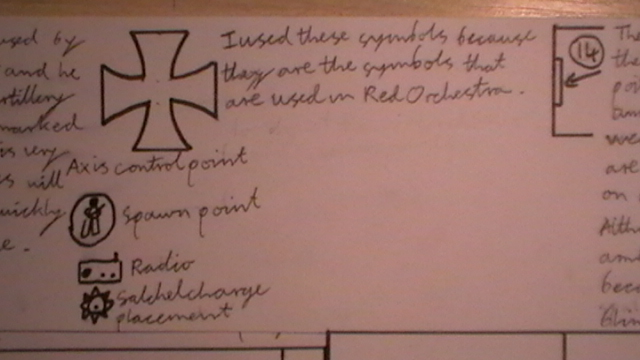 used by
and he
artillery
marked
is very
s will
quickly
e.
I used these symbols because
they are the symbols that
are used in Red Orchestra.
Axis control point
Spawn point
Radio
Satchel charge
placement
14
The
the
are
on